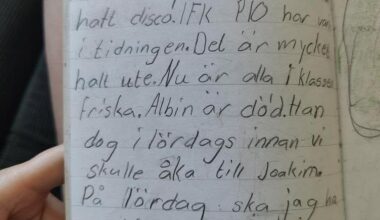 haft disco! IFK P10 har
i tidningen. Del är mycke
halt ute. Nu är alla i klasse
friska. Albin är död. Han
dog i lördags innan vi
skulle åka till Joakim.
På lördag ska jag ha